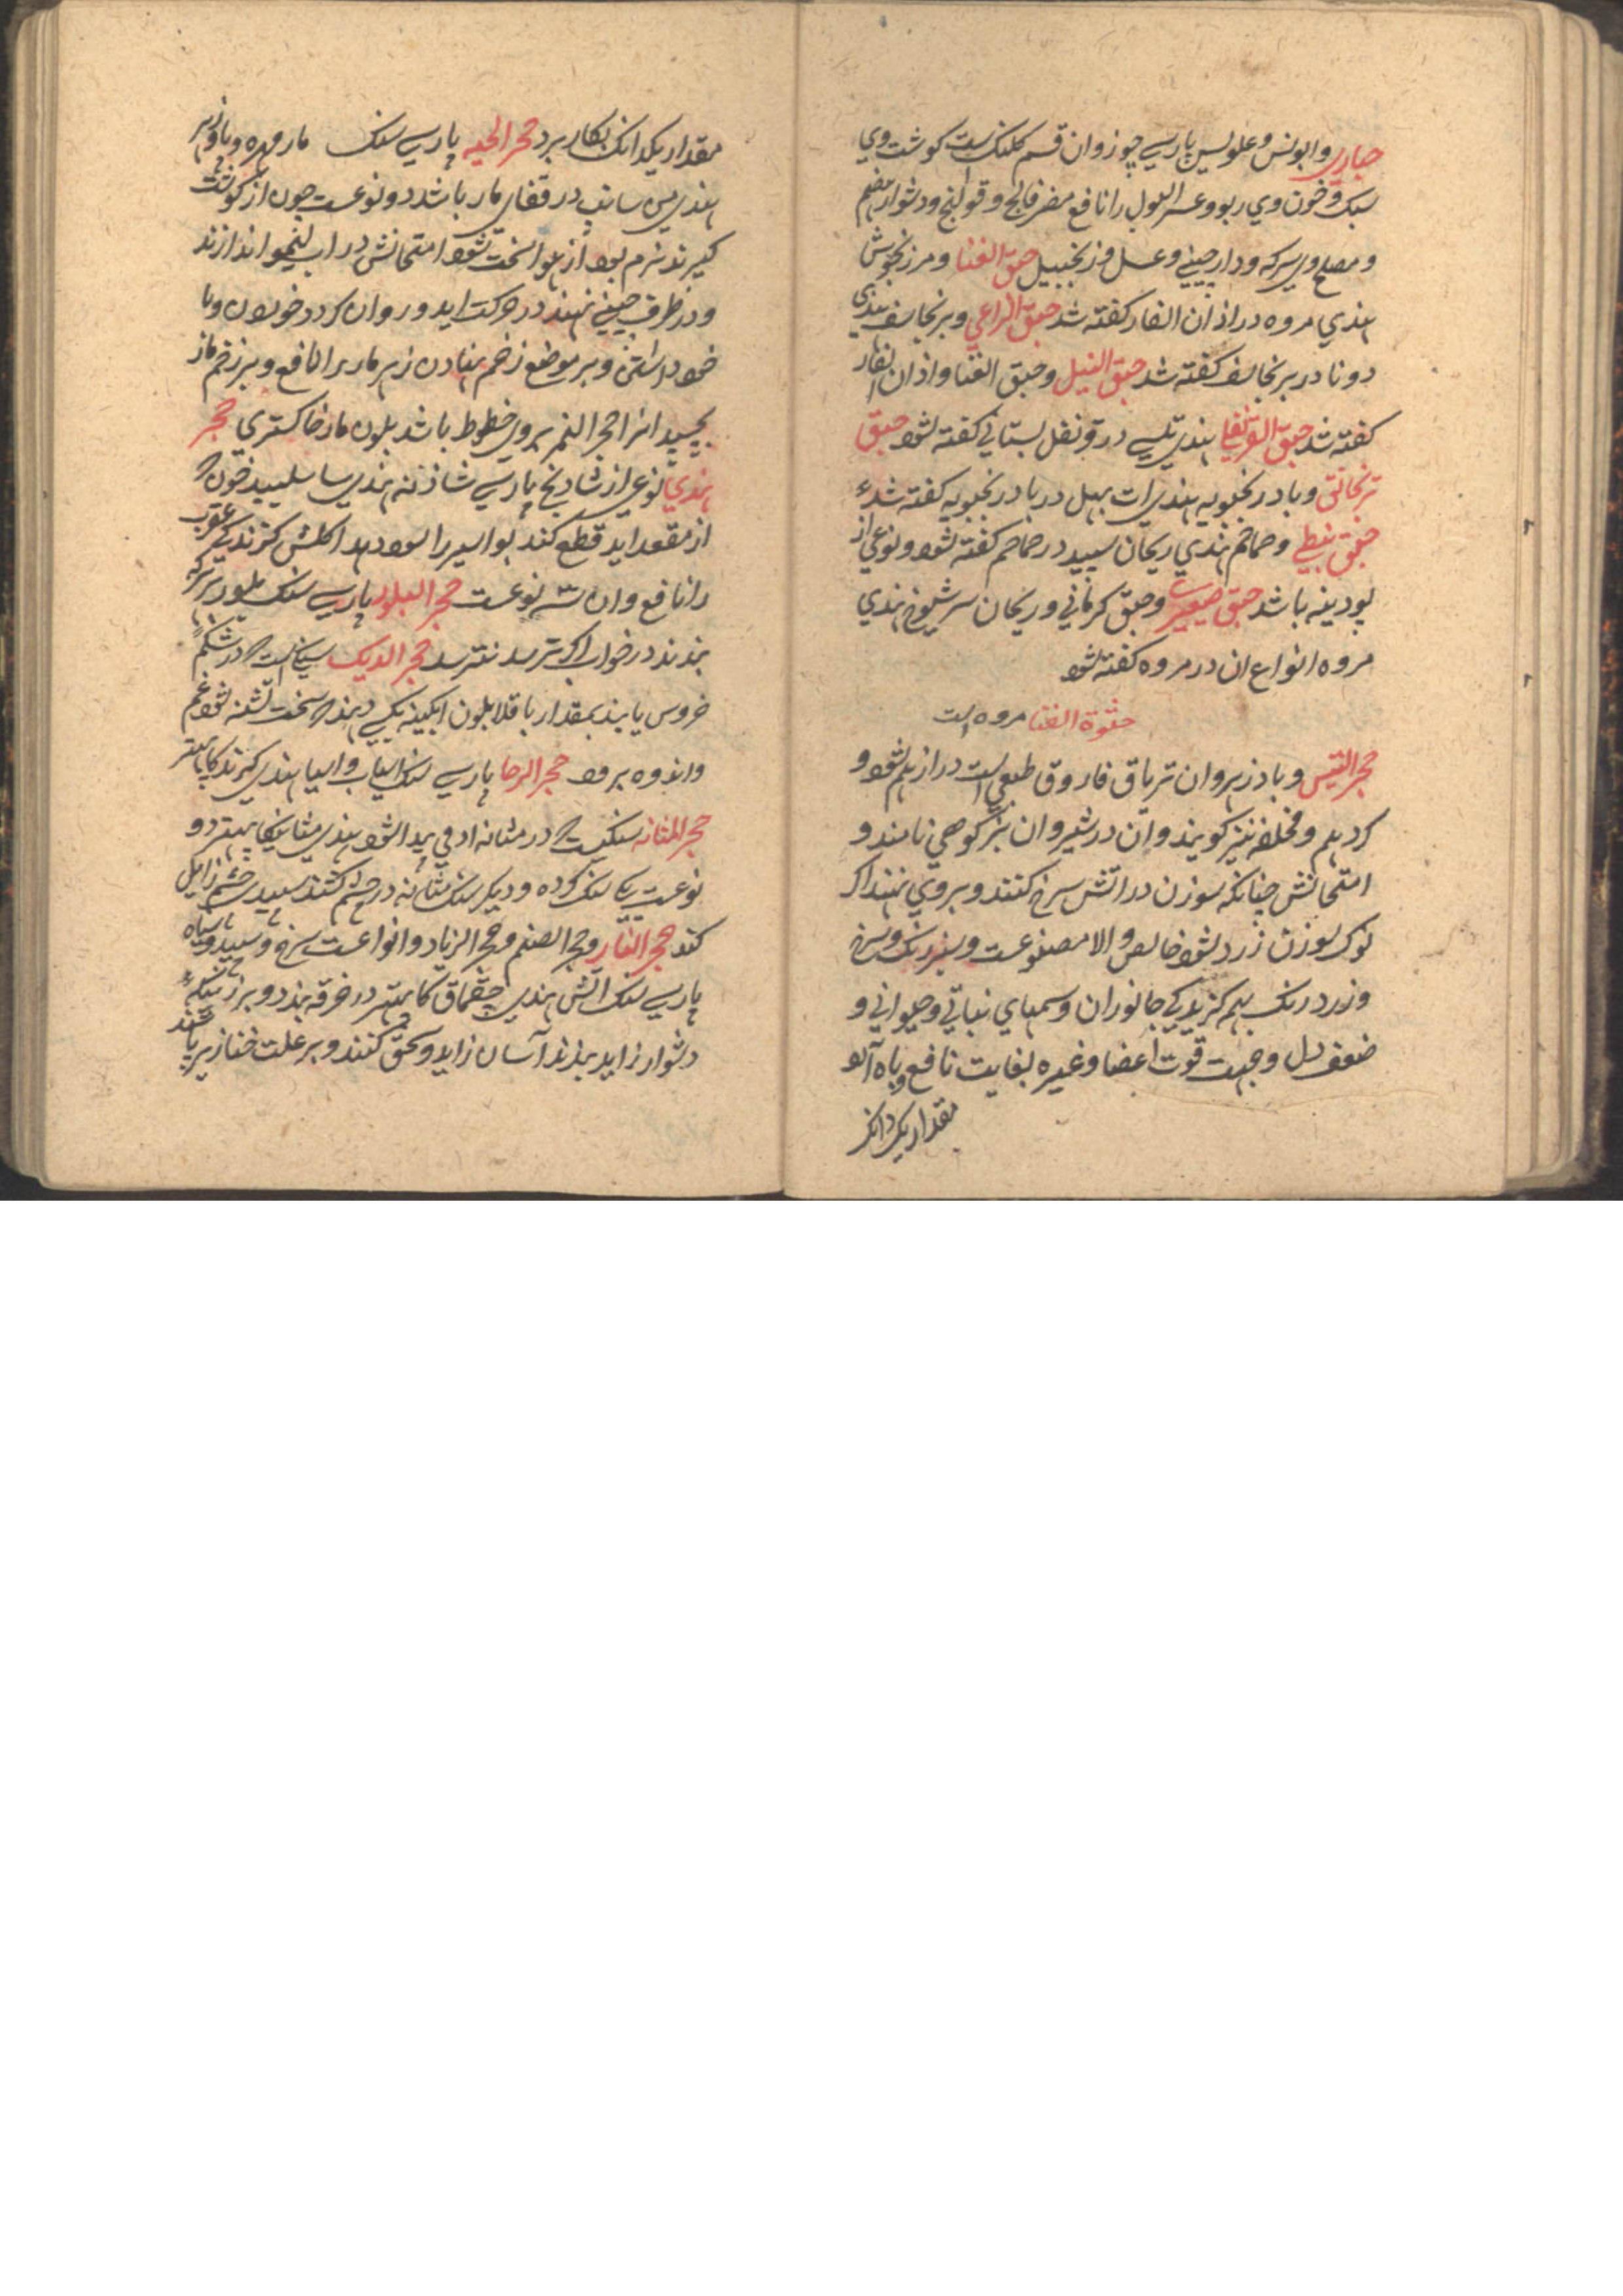 حباری وابونس وعلولیس پارسی چوز وان قسم کلنک ست کوشت وی
سبک و خون وی ربو و عسر البول را نافع مضر فالج و قولنج و دشوار هضم
و مصلح وی سرکه و دارچینی و عسل و زنجبیل حبق القنا و مرزنجوش
هندی مروه در اذان الفار کفته شد حبق الراعی و برنجاسف هندی
دونا در برنجاسف کفته شد حبق الفیل و حبق القنا و اذان الفار
کفته شد حبق القرنفلی هندی تلسی در قرنفل بستانی کفته شود حبق
ترنجانی و بادرنجبویه هندی در بادرنجبویه کفته شد
حبق نبطی و حماحم هندی ریحان سپید در حماحم کفته شود و نوعی از
پودینه باشد حبق و حبق کرمانی و ریحان هندی
مروه انواع ان در مروه کفته شود
القنا مروه است
حجر التیس و بادزهر وان تریاق فاروق طبعی است دراز هم شود و
کرد هم و مخلصه نیز کویند وان در شیروان بز کوهی نامند و
امتحانش چنانکه سوزن در اتش سرخ کنند و بروی نهند اکر
نوک سوزن زرد شود خالص و الا مصنوعست و سبزرنک و سرخ
و زرد رنک بهم کزیدکی جانوران و سمهای نباتی و حیوانی و
ضعف دل و جهت قوت اعضا و غیره بغایت نافع و باه آورد
مقدار یک دانک
مقدار یکدانک بکار برد حجر الحیه پارسی سنک مار مهره و
هندی من سانپ در قفای مار باشد دو نوعست چون از کوشت
کیرند نرم بود از هوا سخت شود امتحانش در اب لیمو اندازند
و در ظرف چینی نهند در حرکت اید و روان کردد خوردن و با
خود داشتن و بر موضع زخم نهادن زهر مار را نافع و بر زخم مار
بچسپد انرا حجر النمر بروی خطوط باشد بلون مار خاکستری حجر
هندی نوعی از شادنج پارسی شاذنه هندی خون که
از مقعد اید قطع کند بواسیر را سود دهد عقرب
را نافع وان سه نوعست حجر البلور پارسی سنک بلور بر که
بندند در خواب اکر ترسد نترسد حجر الدیک سنکی است که در شکم
خروس یابند بمقدار باقلا بلون ابکینه سخت تشنه شود غم
و اندوه برود حجر الرحا پارسی سنک اسیاب و اسیا هندی
حجر المثانه سنکیست که در مثانه ادمی پیدا شود هندی دو
نوعست یکی سنک کرده و دیکر سنک مثانه در چشم کشند سپیدی چشم زایل
کند حجر النار و حجر الصنم و حجر الزناد و انواعست سرخ و سپید و سیاه
پارسی سنک آتش هندی چقماق کا پتهر در خرقه بندد و بر زنیکه
دشوار زاید بندند آسان زاید و سحق کنند و بر علت خنازیر پاشند